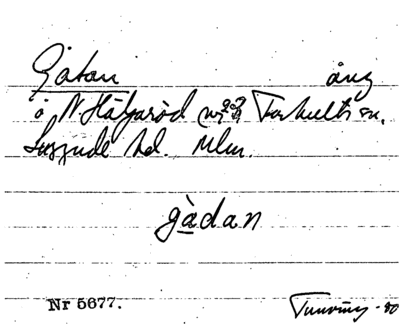 Gåtan äng
å N Häljaröd nr 2 Farhults sn.
Luggude hd. Mlm.
gàdan
Nr 5677.
Tuneving -80